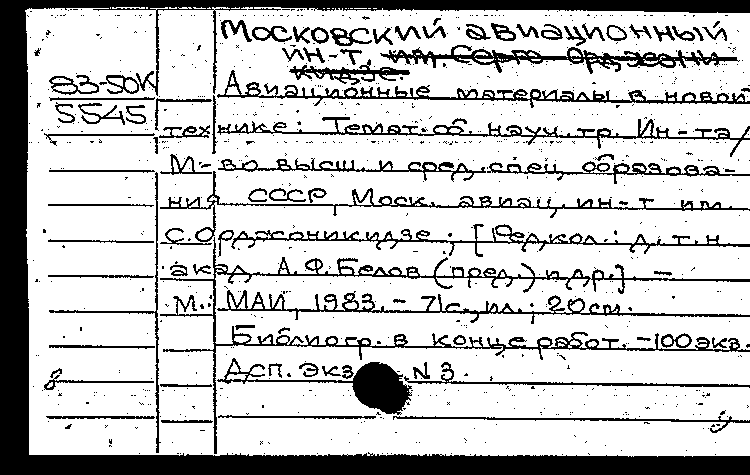 Московский авиационный
ин-т. им. Серго Орджони
кидзе
83-50К
5545
Авиационные материалы в новой
технике: Темат. сб. науч. тр. Ин-та/
М-во высш. и сред. спец. образова-
ния СССР, Моск. авиац. ин-т им.
С. Орджоникидзе; [Редкол.: д. т. н.
акад. А. Ф. Белов (пред.) и др.]. —
М.: МАИ, 1983. - 71 с., ил.; 20 см.
Библиогр. в конце работ. - 100 экз.
Дсп. Экз. N 3.